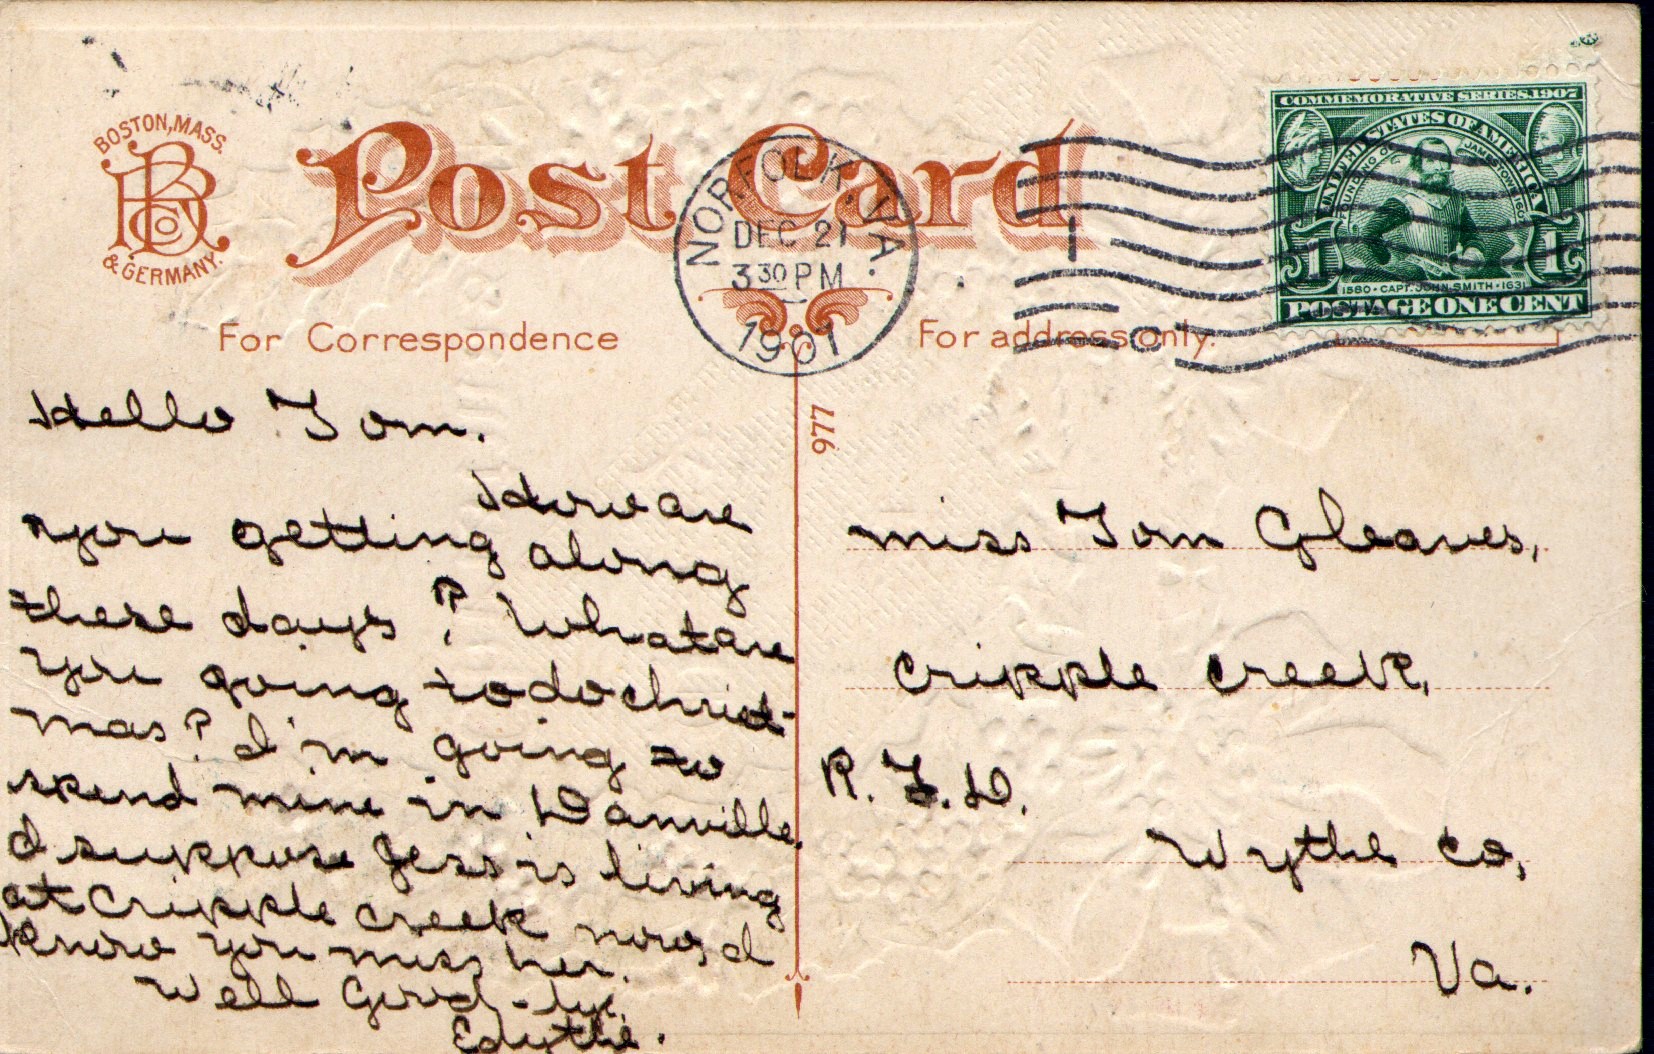 BOSTON, MASS.
BRCo
& GERMANY.
Post Card
NORFOLK, VA.
DEC 21
3 30 PM
1907
COMMEMORATIVE SERIES, 1907
UNITED STATES OF AMERICA
FOUNDING OF JAMESTOWN 1607
1 1
1580 · CAPT. JOHN SMITH · 1631
POSTAGE ONE CENT
For Correspondence
For address only.
977
Hello Tom.
How are
you getting along
these days? What are
you going to do christ-
mas? I'm going to
spend mine in Danville.
I suppose Jess is living
at Cripple creek now, I
know you miss her.
Well Good-by.
Edythe.
miss Tom Gleaves,
cripple creek,
R.F.D.
Wythe co,
Va.